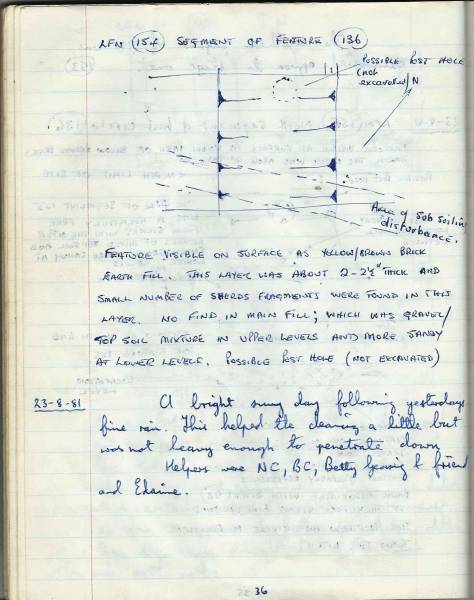 LFN (154) SEGMENT OF FEATURE (136)
POSSIBLE POST HOLE
(not
excavated) N
Area of sub soil in
disturbance.
FEATURE VISIBLE ON SURFACE AS YELLOW/BROWN BRICK
EARTH FILL. THIS LAYER WAS ABOUT 2-2½" THICK AND
SMALL NUMBER OF SHERDS FRAGMENTS WERE FOUND IN THIS
LAYER. NO FIND IN MAIN FILL; WHICH WAS GRAVEL/
TOP SOIL MIXTURE IN UPPER LEVELS AND MORE SANDY
AT LOWER LEVELS. POSSIBLE POST HOLE (NOT EXCAVATED)
23-8-81 A bright sunny day following yesterdays
fine rain. This helped the clearing a little but
was not heavy enough to penetrate down
Helpers were NC, BC, Betty & friend
and Elaine.
36